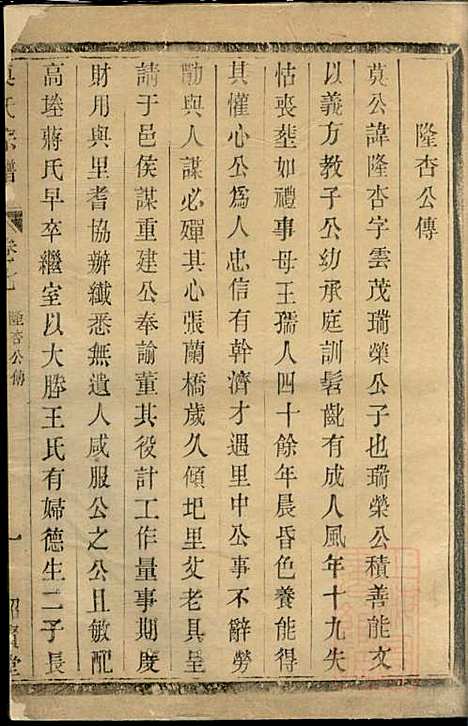 隆杏公傳
莫公諱隆杏字雲茂瑞榮公子也瑞榮公積善能文
以義方教子公幼承庭訓髫齔有成人風年十九失
怙喪塟如禮事母王孺人四十餘年晨昏色養能得
其懽心公爲人忠信有幹濟才遇里中公事不辭勞
勩與人謀必殫其心張蘭橋歲久傾圯里父老具呈
請于邑侯謀重建公奉諭董其役計工作量事期度
財用與里耆協辦纖悉無遺人咸服公之公且敏配
高墶蔣氏早卒繼室以大勝王氏有婦德生二子長
氏宗譜 卷七 隆杏公傳 一 堂